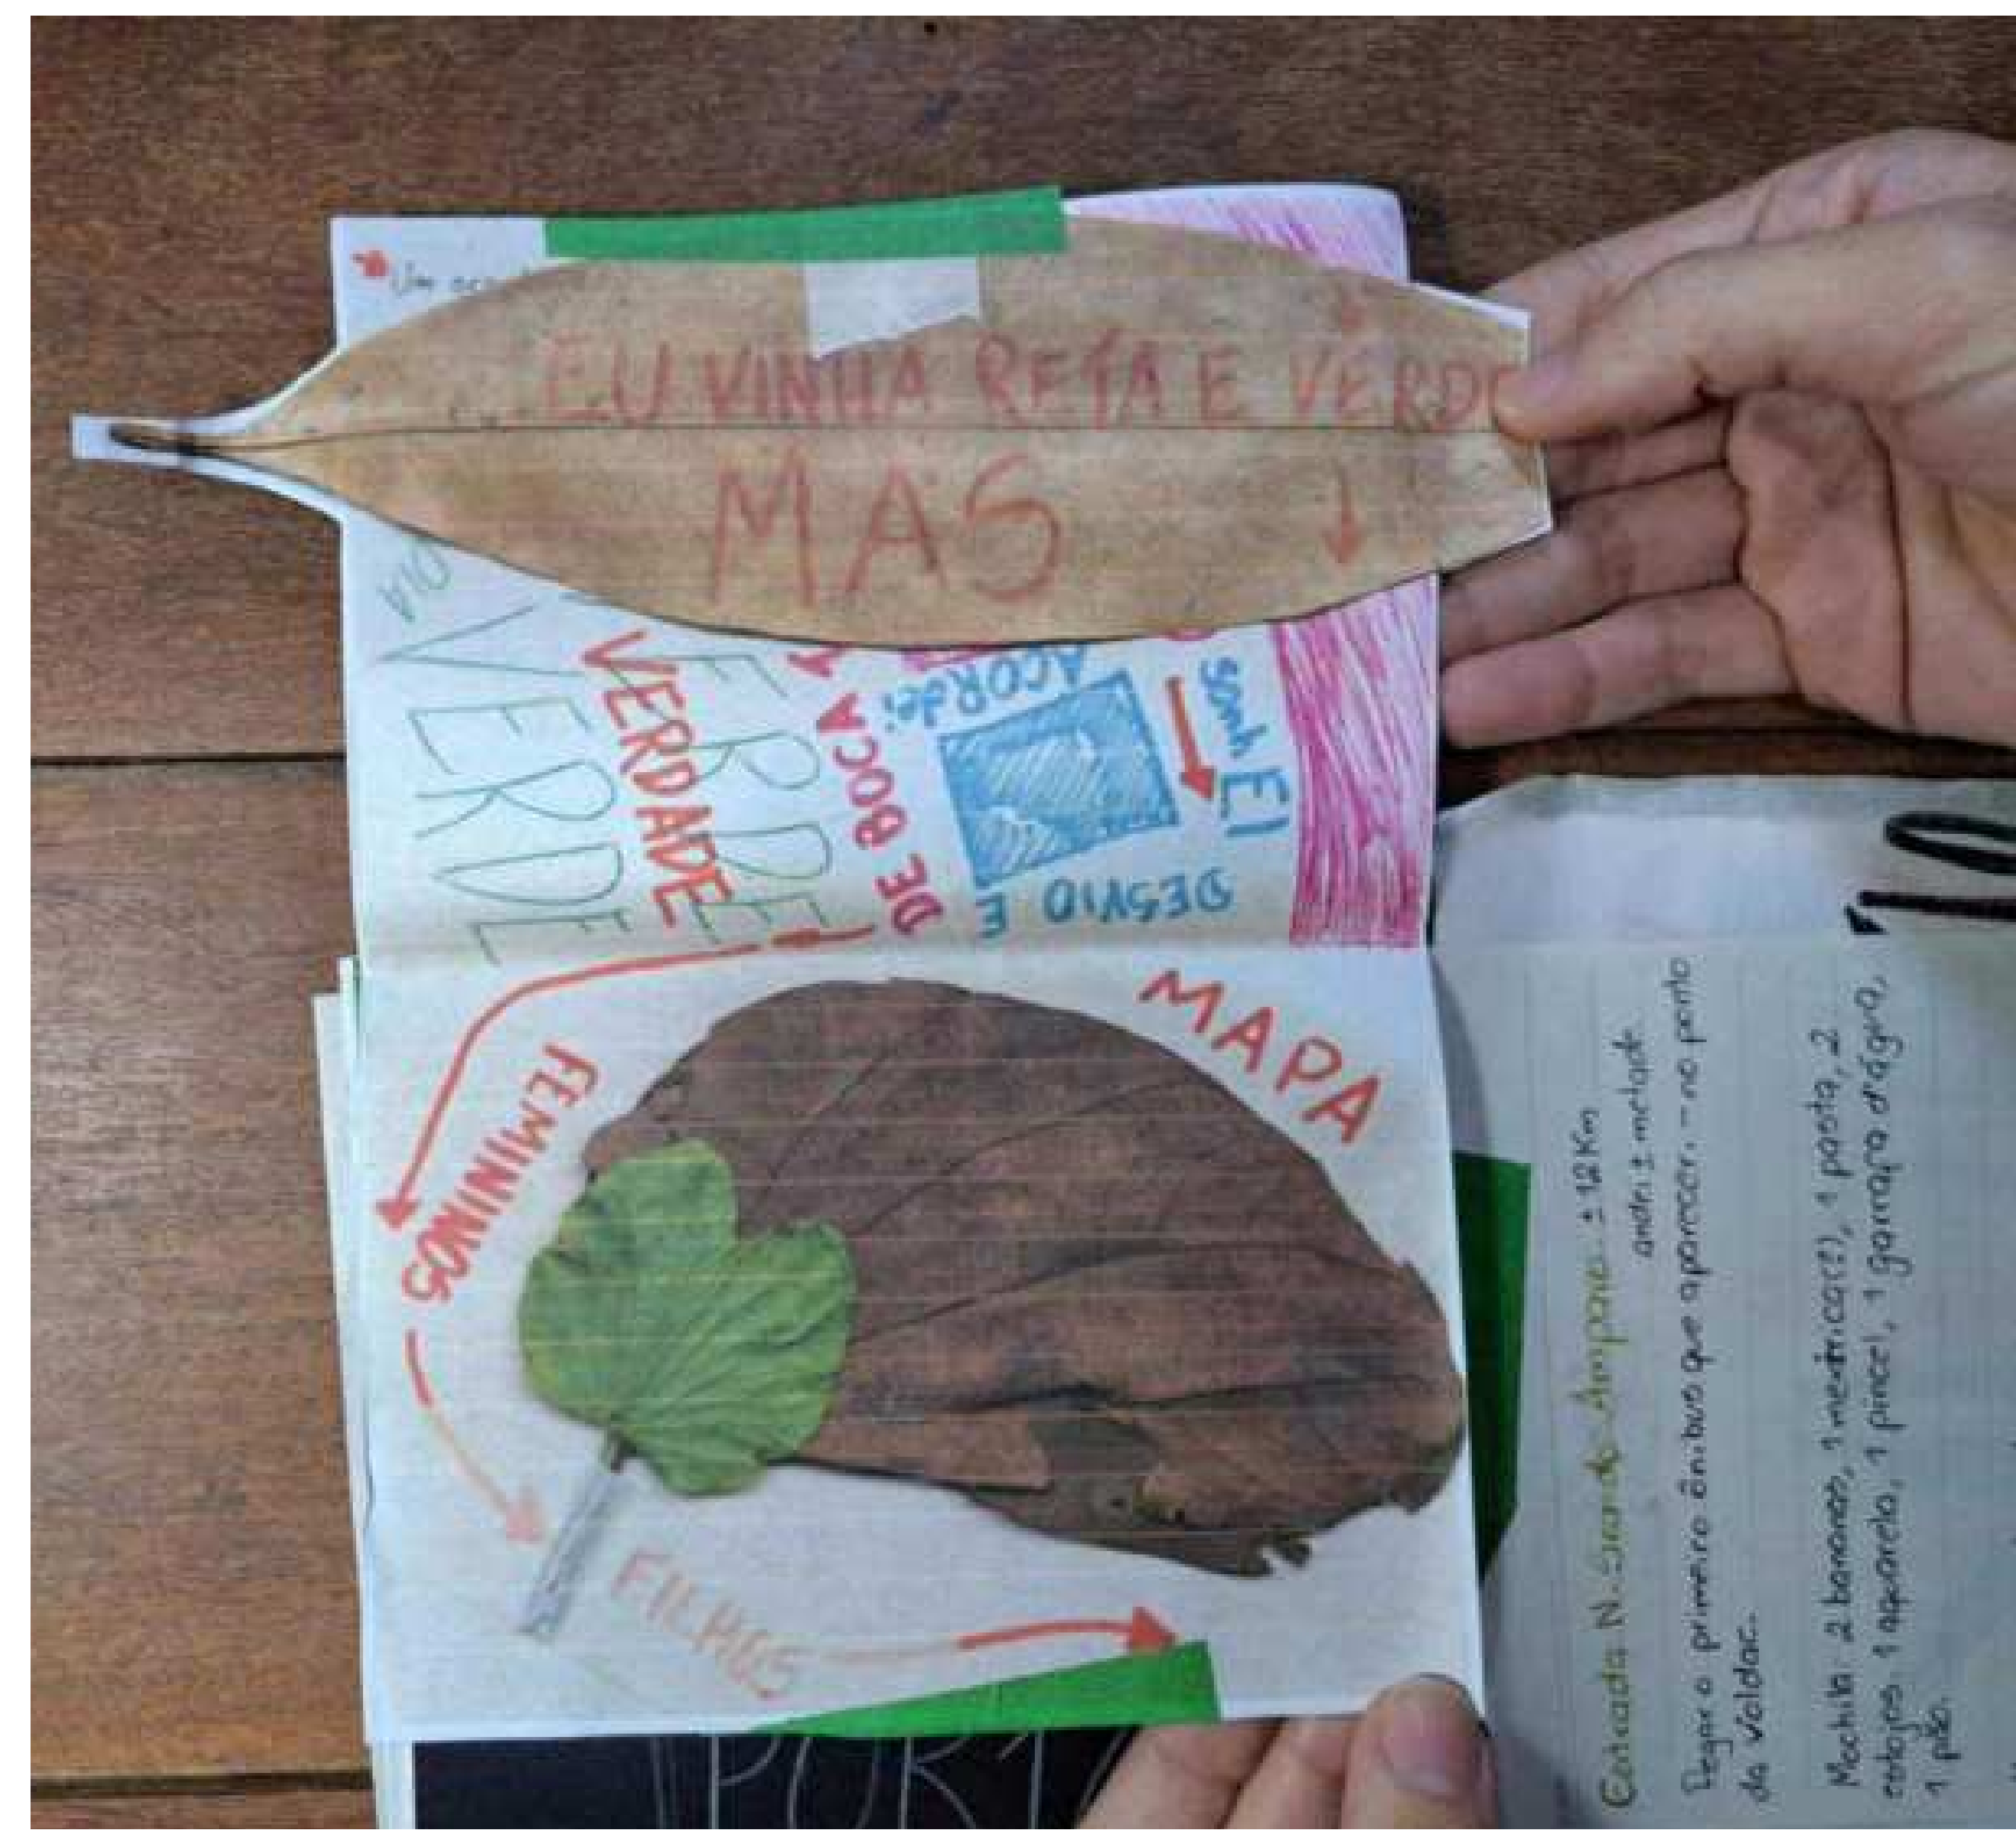 Um
EU VINHA RETA E VERDE
MAS
DIA
VERDE
VERDE
VERDADE
DE BOCA
ACORDEI
sonh
EI
DESVIO
EM
MAPA
FEMININOS
FILHOS
POR
10
Estrada N. Sra do Amparo: ± 12 Km
andei ± metade
Pegar o primeiro ônibus que aparecer. - no ponto
da Valdac.
Mochila: 2 bananas, 1 mexirica(?), 1 pasta, 2
estojos, 1 aquarela, 1 pincel, 1 garrafa d'água,
1 pão.